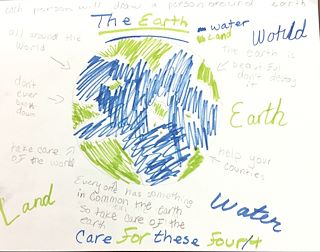 each person will draw a person around earth
The Earth
water
Land
World
all around the World
the earth is beautiful don't destroy it
don't ever down
Earth
take care of the world
help your countries
Everyone has something in common the earth
So take care of the earth
Land
Water
Care for these four